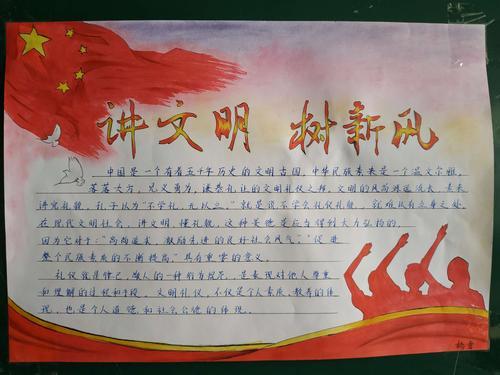 讲文明 树新风
中国是一个有着五千年历史的文明古国，中华民族素来是一个温文尔雅，
落落大方，见义勇为，谦恭礼让的文明礼仪之邦，文明的风尚源远流长，素来
讲究礼貌，孔子认为“不学礼，无以立。”就是说不学会礼仪礼貌，就难以有立身之处
在现代文明社会，讲文明，懂礼貌，这种美德是应当得到大力弘扬的，
因为它对于：“高尚追求，激励先进的良好社会风气”，“促进
整个民族素质的不断提高”具有重要的意义。
礼仪就是律己，敬人的一种行为规范，是表现对他人尊重
和理解的过程和手段。文明礼仪，不仅是个人素质、教养的体
现，也是个人道德和社会公德的体现。